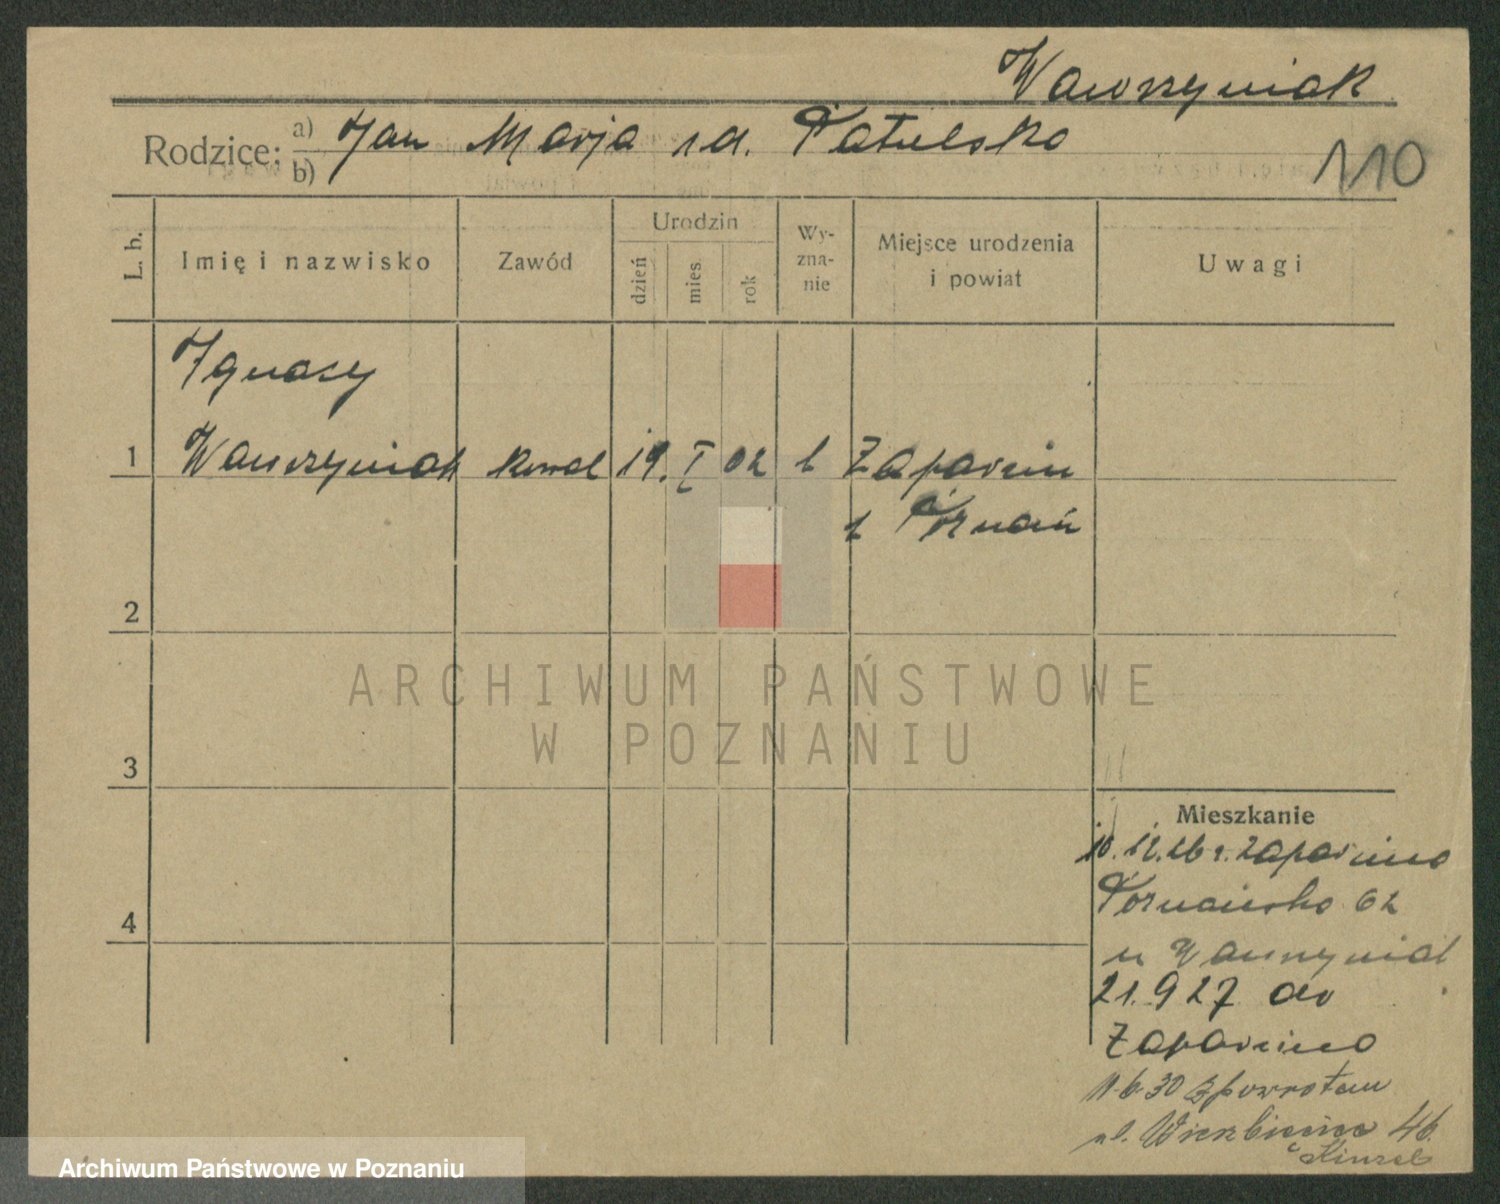 Wawrzyniak
Rodzice: a) Jan Marja
b)
110
L. b.
Imię i nazwisko
Zawód
Urodzin
dzień
mies.
rok
Wy-
zna-
nie
Miejsce urodzenia
i powiat
Uwagi
Ignacy
1 Wawrzyniak kowal 19. I 02
Poznań
2
ARCHIWUM PAŃSTWOWE
W POZNANIU
3
Mieszkanie
10.12.26 r.
Poznańska 62
u Wawrzyniak
21.9 27 do
4
11-6-30 z powrotem
ul. Wierzbięcice 46
Archiwum Państwowe w Poznaniu